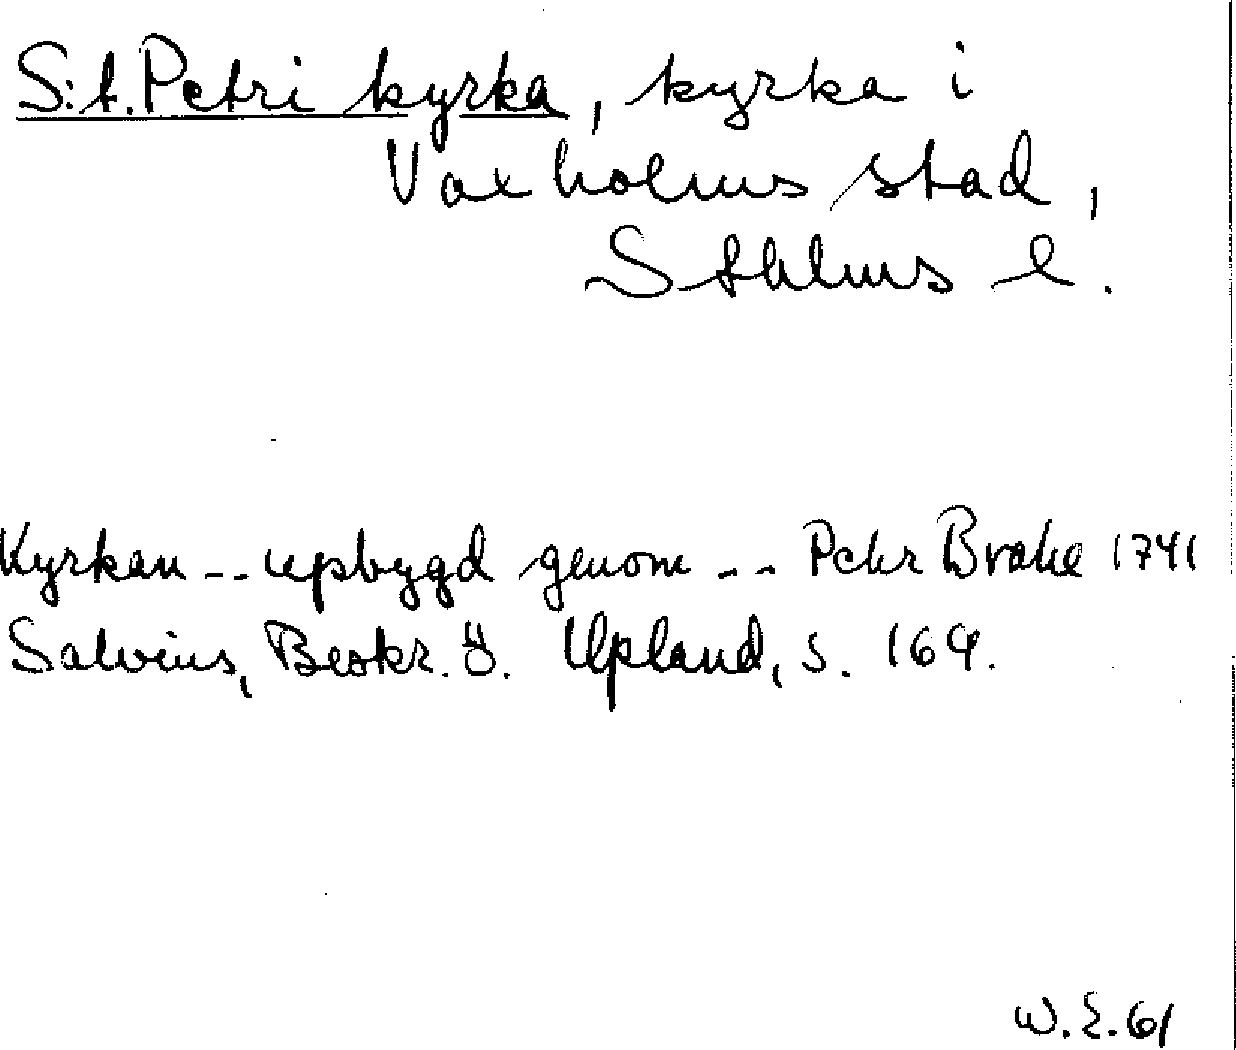 S:t. Petri kyrka, kyrka i
Vaxholms stad,
Sthlms l.
Kyrkan -- upbygd genom -- Pehr Brahe 1741
Salvius, Beskr. ö. Upland, s. 169.
W.E. 61